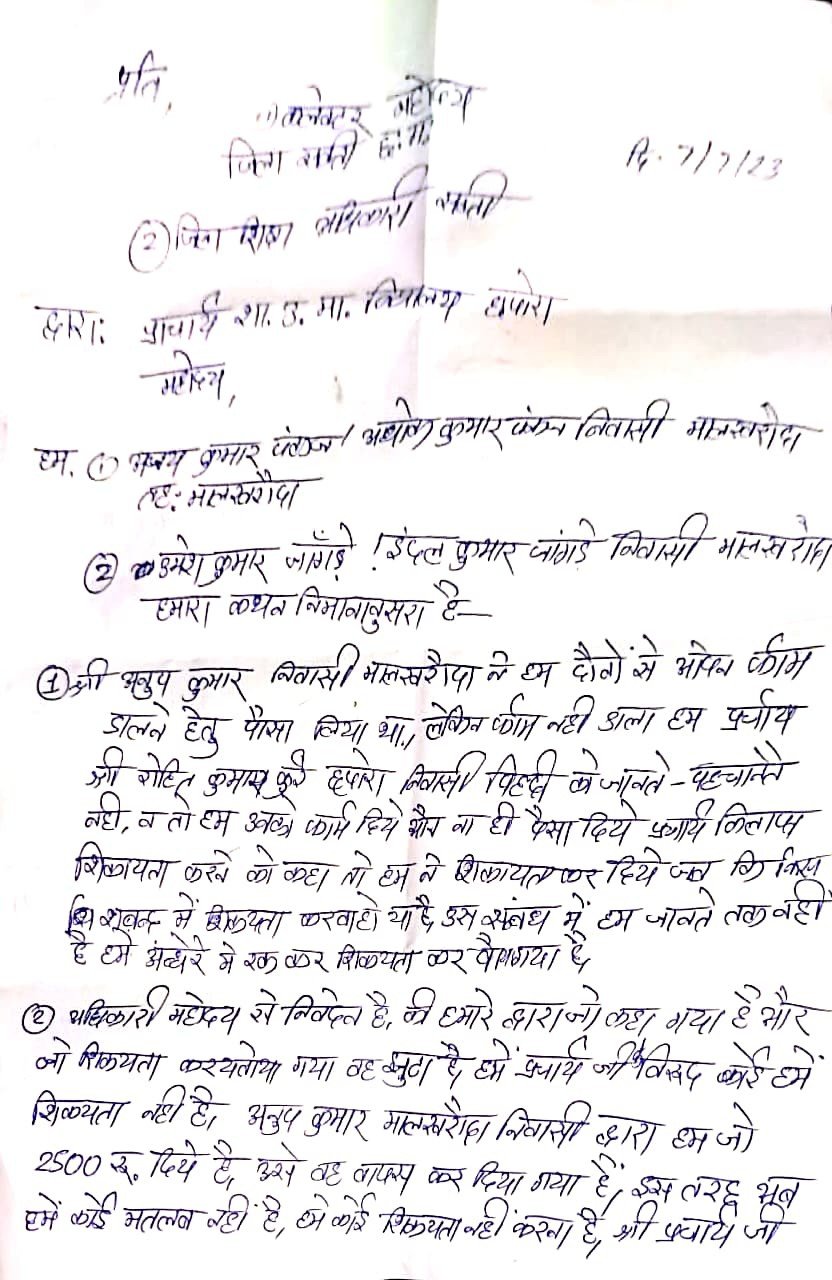 प्रति,
कलेक्टर महोदय
जिला सक्ती छ.ग.
दि. 7/7/23
(2) जिला शिक्षा अधिकारी सक्ती
द्वारा: प्राचार्य शा. उ. मा. विद्यालय छपोरा
महोदय,
हम. (1) कुमार / कुमार निवासी मालखरौदा
तह: मालखरौदा
(2) उमेश कुमार जाँगड़े / इंदल कुमार जांगड़े निवासी मालखरौदा
हमारा कथन निमानानुसरा है—
(1) श्री अनुप कुमार निवासी मालखरौदा ने हम दोनों से ओपन फॉर्म
डालने हेतु पैसा लिया था, लेकिन फॉर्म नही डाला हम प्रर्चाय
श्री रोहित कुमार कुर्रे छपोरा निवासी को जानते-पहचानते
नही, न तो हम उनको फॉर्म दिये और ना ही पैसा दिये
शिकायता करने को कहा तो हम ने शिकायत कर दिये जब कि किस
में शिकयता उस संबंध में हम जानते तक नही
है हमे अंधेरे मे रख कर शिकयता कर गया है,
(2) अधिकारी महोदय से निवेदन है, की हमारे द्वारा जो कहा गया है और
जो शिकयता गया वह झुठा है, हमें प्रचार्य जी के विरूद कोई हमें
शिकयता नही है, अनुप कुमार मालखरौदा निवासी द्वारा हम जो
2500 रू. दिये है, उसे वह वापस कर दिया गया है, इस तरह अब
हमें कोई मतलब नही है, हमे कोई शिकयता नही करना है, श्री प्रचार्य जी